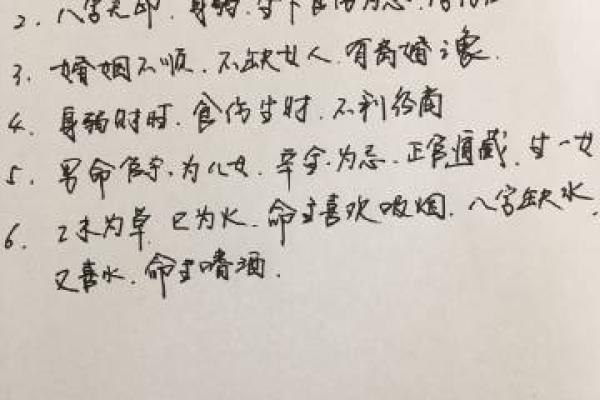 2、八字无印、身弱、坐下食伤为忌、
3、婚姻不顺、不缺女人、有离婚之象.
4、身弱财旺、食伤生财、不利经商
5、男命官杀、为儿女、辛金、为忌、正官通藏、生一女
6、乙未为草、巳为火、命主喜欢吸烟、八字缺水、
又喜水、命主嗜酒.